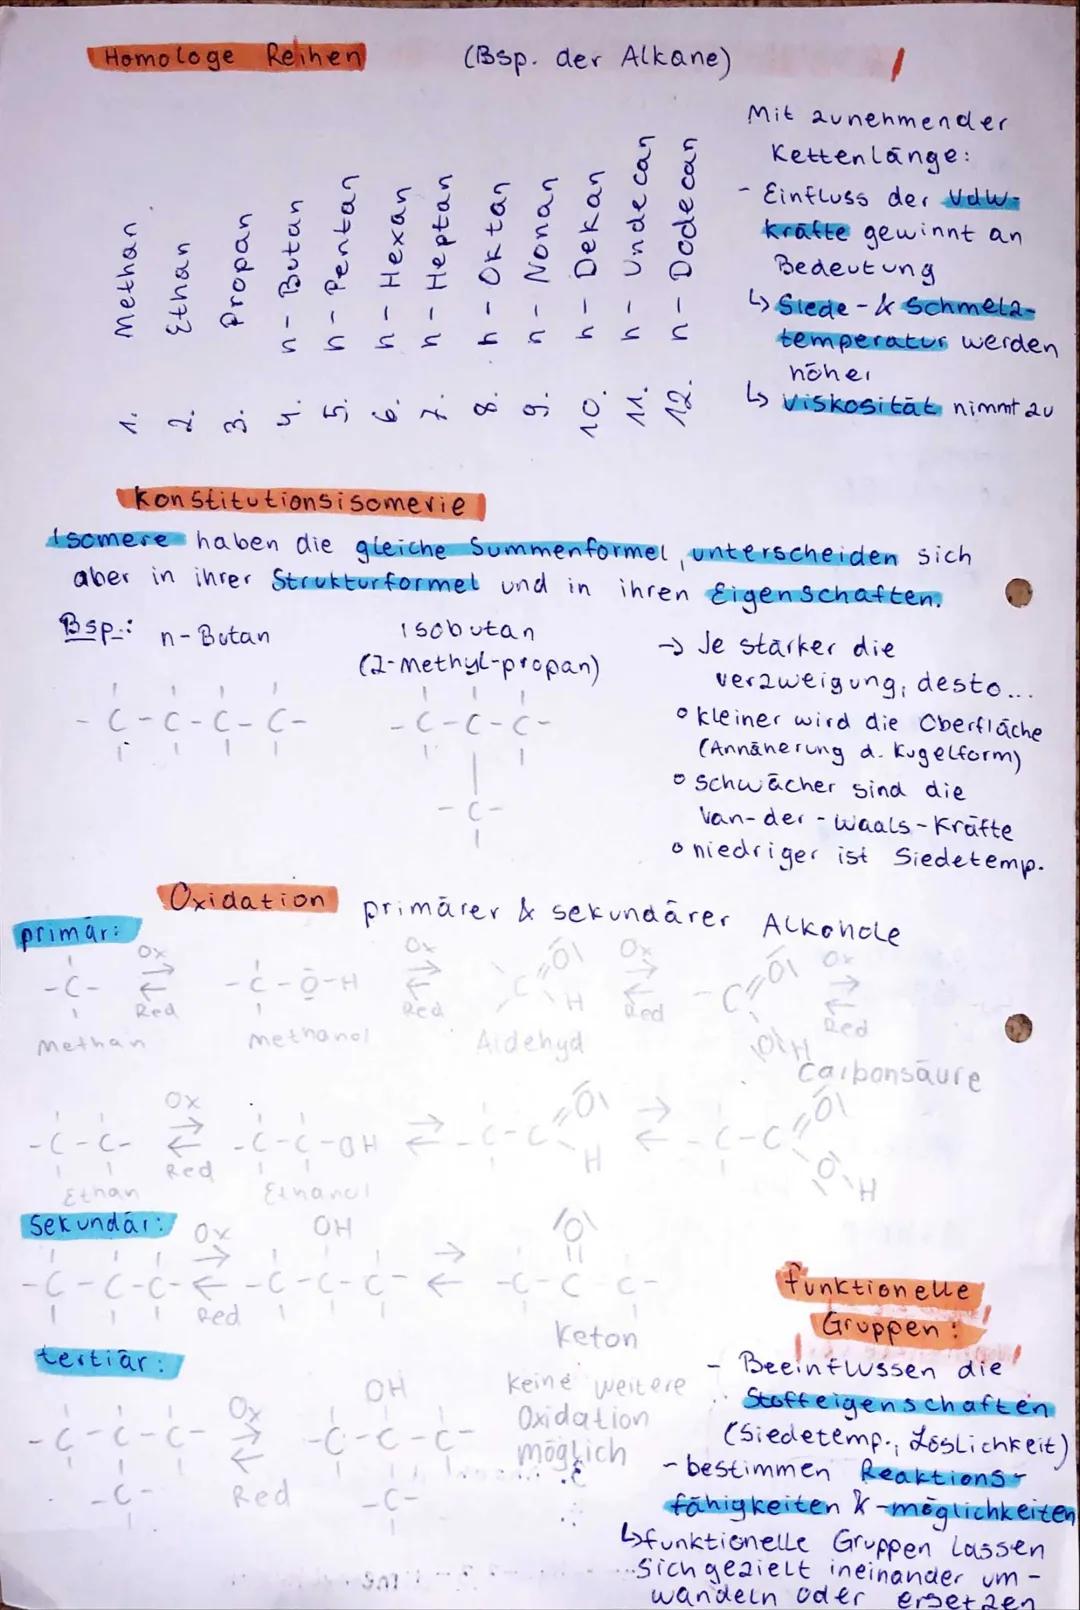 Homologe Reihen (Bsp. der Alkane)
1. Methan
2. Ethan
3. Propan
4. n-Butan
5. n-Pentan
6. n-Hexan
7. n-Heptan
8. n-Oktan
9. n-Nonan
10. n-Dekan
11. n-Undecan
12. n-Dodecan
Mit zunehmender
Kettenlänge:
- Einfluss der VdW-
kräfte gewinnt an
Bedeutung
↳ Siede- & Schmelz-
temperatur werden
höher
↳ Viskosität nimmt zu
Konstitutionsisomerie
Isomere haben die gleiche Summenformel, unterscheiden sich
aber in ihrer Strukturformel und in ihren Eigenschaften.
Bsp.: n-Butan
Isobutan
(2-Methyl-propan)
-C-C-C-C-
-C-C-C-
-C-
→ Je stärker die
verzweigung, desto...
° kleiner wird die Oberfläche
(Annäherung d. Kugelform)
° schwächer sind die
Van-der-Waals-Kräfte
° niedriger ist Siedetemp.
Oxidation primärer & sekundärer Alkohole
primär:
-C- Ox ⇄ Red -C-O-H Ox ⇄ Red C=O H Ox ⇄ Red -C=O O-H Ox ⇄ Red
Methan Methanol Aldehyd Carbonsäure
-C-C- Ox ⇄ Red -C-C-OH ⇄ -C-C=O H ⇄ -C-C=O O-H
Ethan Ethanol
Sekundär:
OH O
-C-C-C- Ox ⇄ Red -C-C-C- ⇄ -C-C-C-
Keton
tertiär:
OH
-C-C-C- Ox ⇄ Red -C-C-C-
-C- -C-
Keine weitere
Oxidation
möglich
funktionelle
Gruppen:
- Beeinflussen die
Stoffeigenschaften
(Siedetemp., Löslichkeit)
- bestimmen Reaktions-
fähigkeiten & -möglichkeiten
↳ funktionelle Gruppen lassen
sich gezielt ineinander um-
wandeln oder ersetzen